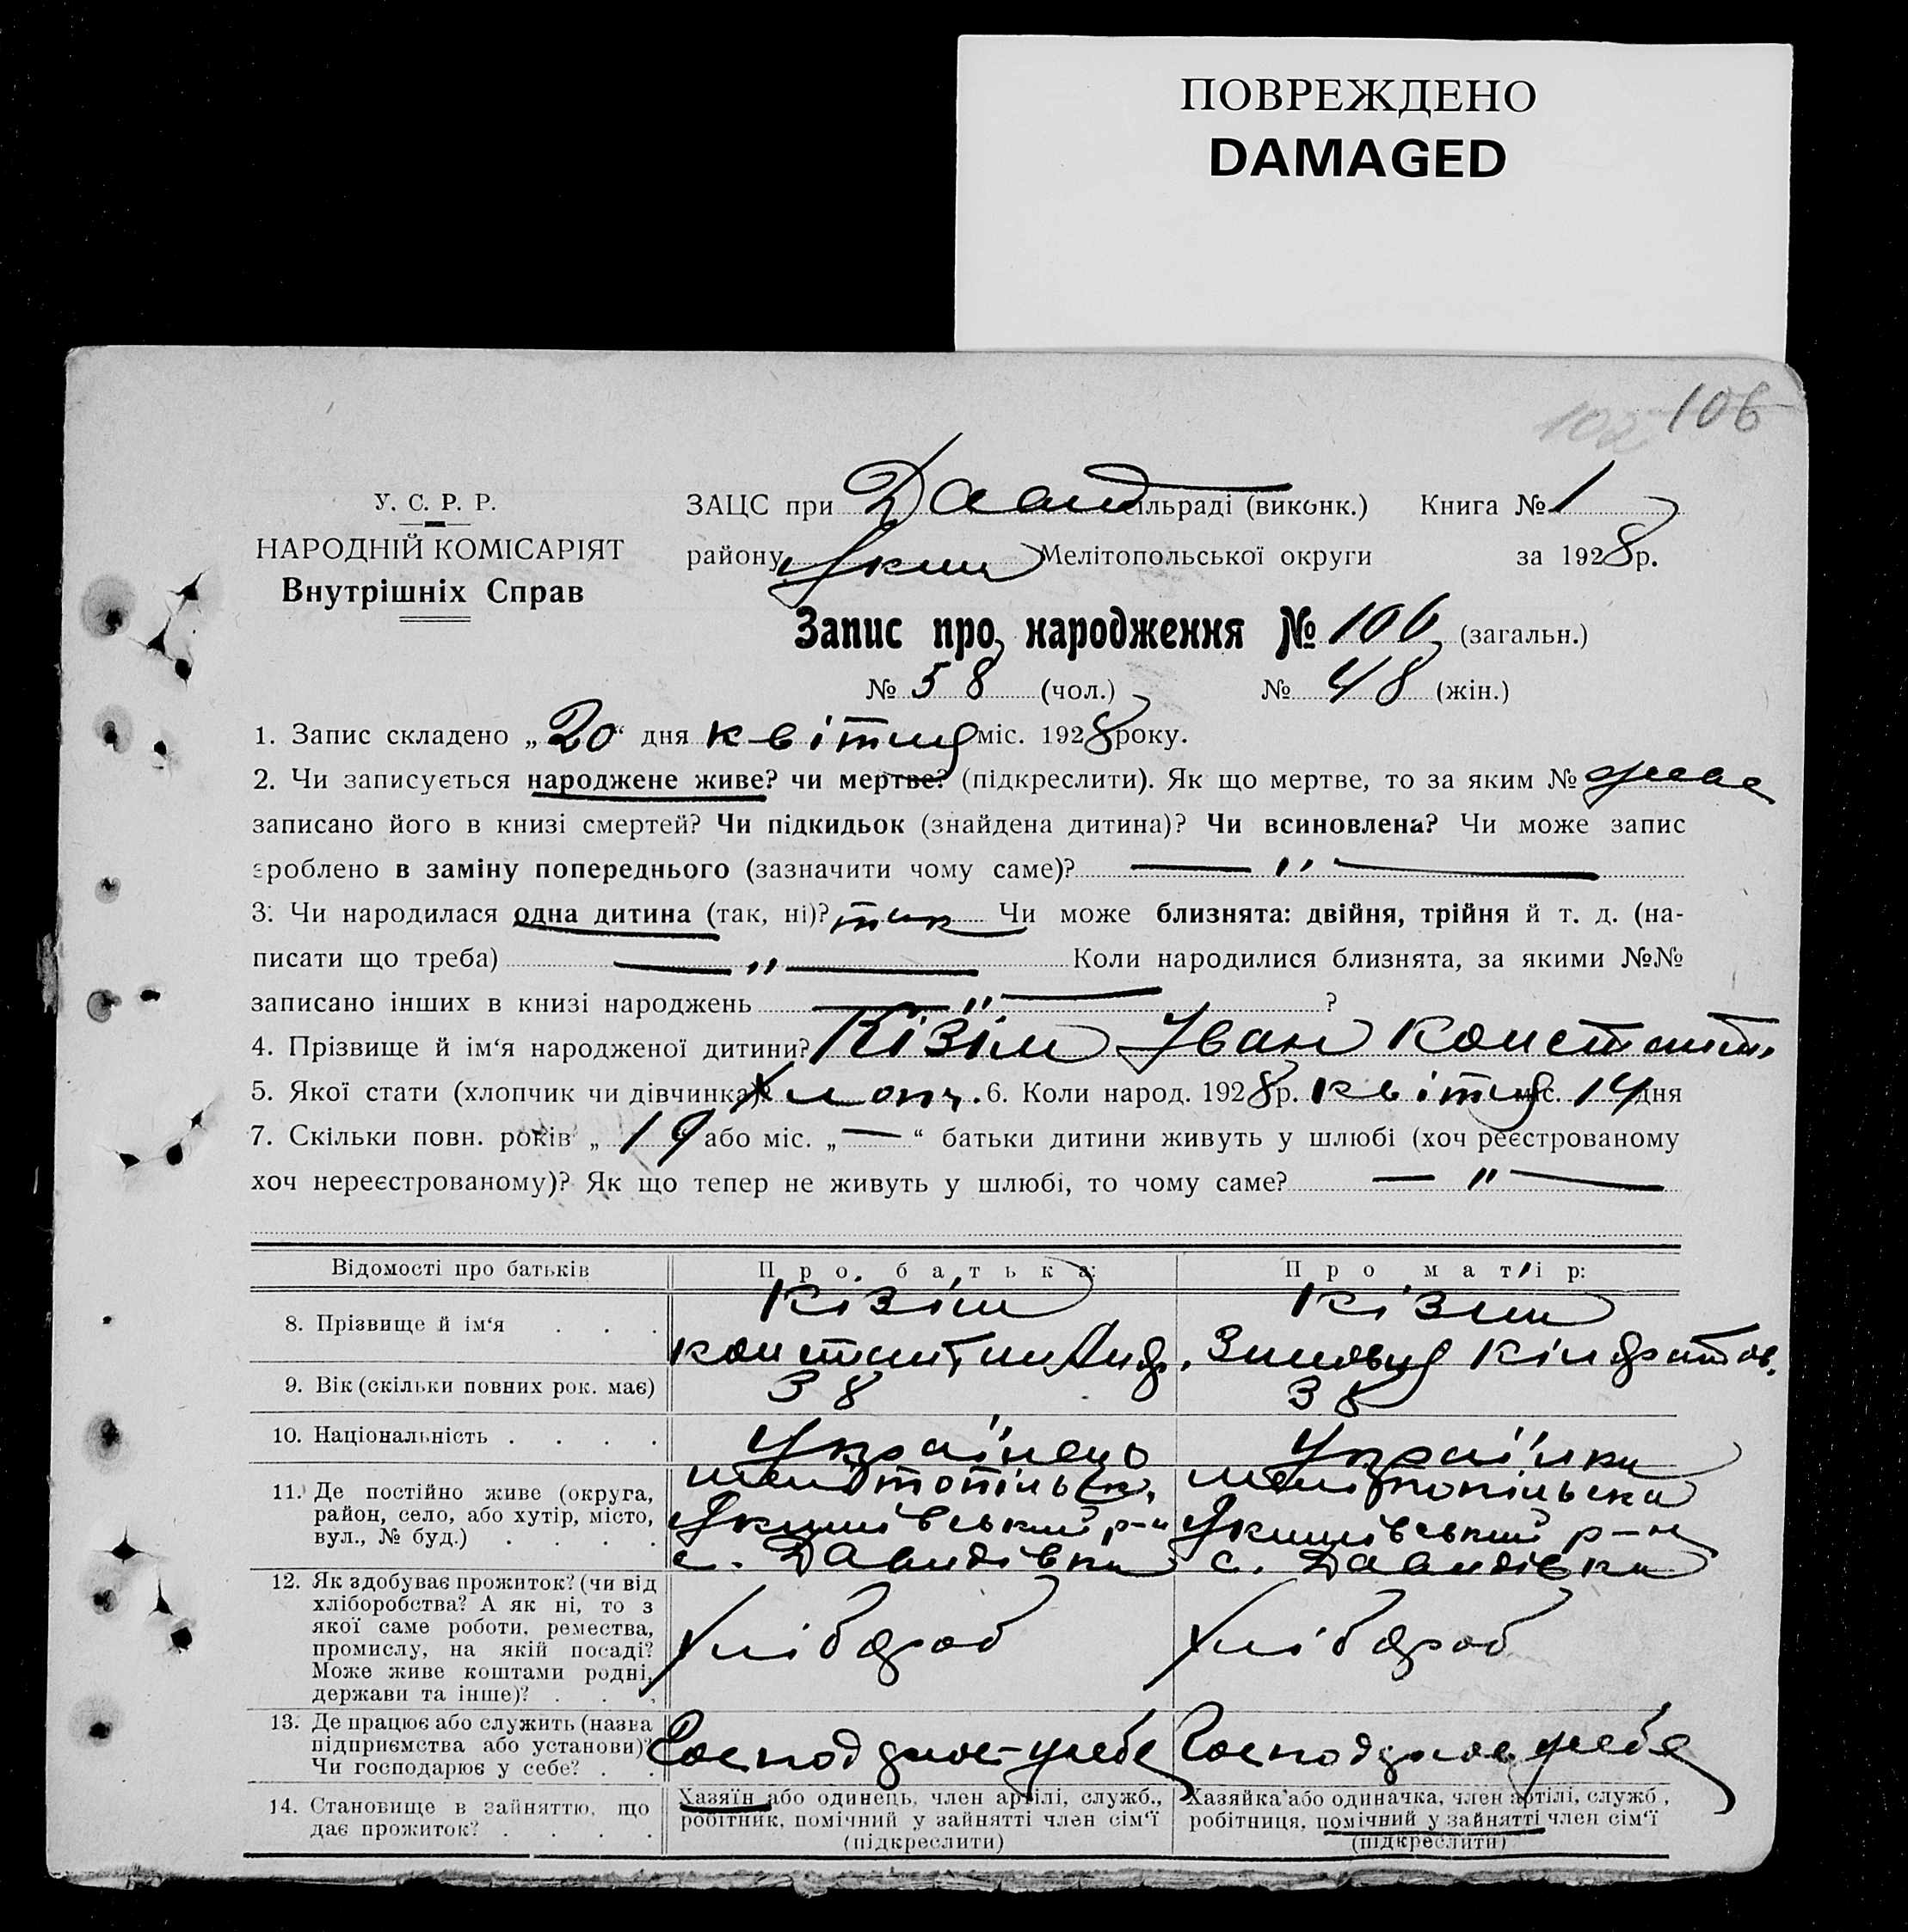 ПОВРЕЖДЕНО
DAMAGED
102 106
У. С. Р. Р.
НАРОДНІЙ КОМІСАРІЯТ
Внутрішніх Справ
ЗАЦС при Давид сільраді (виконк.) Книга № 1
району Яким Мелітопольської округи за 1928 р.
Запис про народження № 106 (загальн.)
№ 58 (чол.) № 48 (жін.)
1. Запис складено „20“ дня квітня міс. 1928 року.
2. Чи записується народжене живе? чи мертве? (підкреслити). Як що мертве, то за яким № живе
записано його в книзі смертей? Чи підкидьок (знайдена дитина)? Чи всиновлена? Чи може запис
зроблено в заміну попереднього (зазначити чому саме)? — " —
3. Чи народилася одна дитина (так, ні)? так Чи може близнята: двійня, трійня й т. д. (на-
писати що треба) — " — Коли народилися близнята, за якими №№
записано інших в книзі народжень — " — ?
4. Прізвище й ім‘я народженої дитини? Кізім Іван Констант.
5. Якої стати (хлопчик чи дівчинка)? хлопч. 6. Коли народ. 1928 р. квітня міс. 14 дня
7. Скільки повн. років „19“ або міс. „—“ батьки дитини живуть у шлюбі (хоч реєстрованому
хоч нереєстрованому)? Як що тепер не живуть у шлюбі, то чому саме? — " —
Відомості про батьків Про батька: Про матір:
8. Прізвище й ім‘я . . . Кізім Кізім
Константин Андр. Зиновия Кіндратов.
9. Вік (скільки повних рок. має) 38 38
10. Національність . . . . Українець Українка
11. Де постійно живе (округа, район, село, або хутір, місто, вул., № буд.) . . . .
Мелітопільськ. Якимівський р-н с. Давидівка
Мелітопільська Якимівський р-н с. Давидівка
12. Як здобуває прожиток? (чи від
хліборобства? А як ні, то з
якої саме роботи, ремества,
промислу, на якій посаді?
Може живе коштами родні,
держави та інше)? . . .
Хлібороб Хлібороб
13. Де працює або служить (назва
підприємства або установи)?
Чи господарює у себе? . .
14. Становище в зайняттю, що
дає прожиток? . . . .
Хазяїн або одинець, член артілі, служб.,
робітник, помічний у зайнятті член сім‘ї
(підкреслити)
Хазяйка або одиначка, член артілі, служб.,
робітниця, помічний у зайнятті член сім‘ї
(підкреслити)